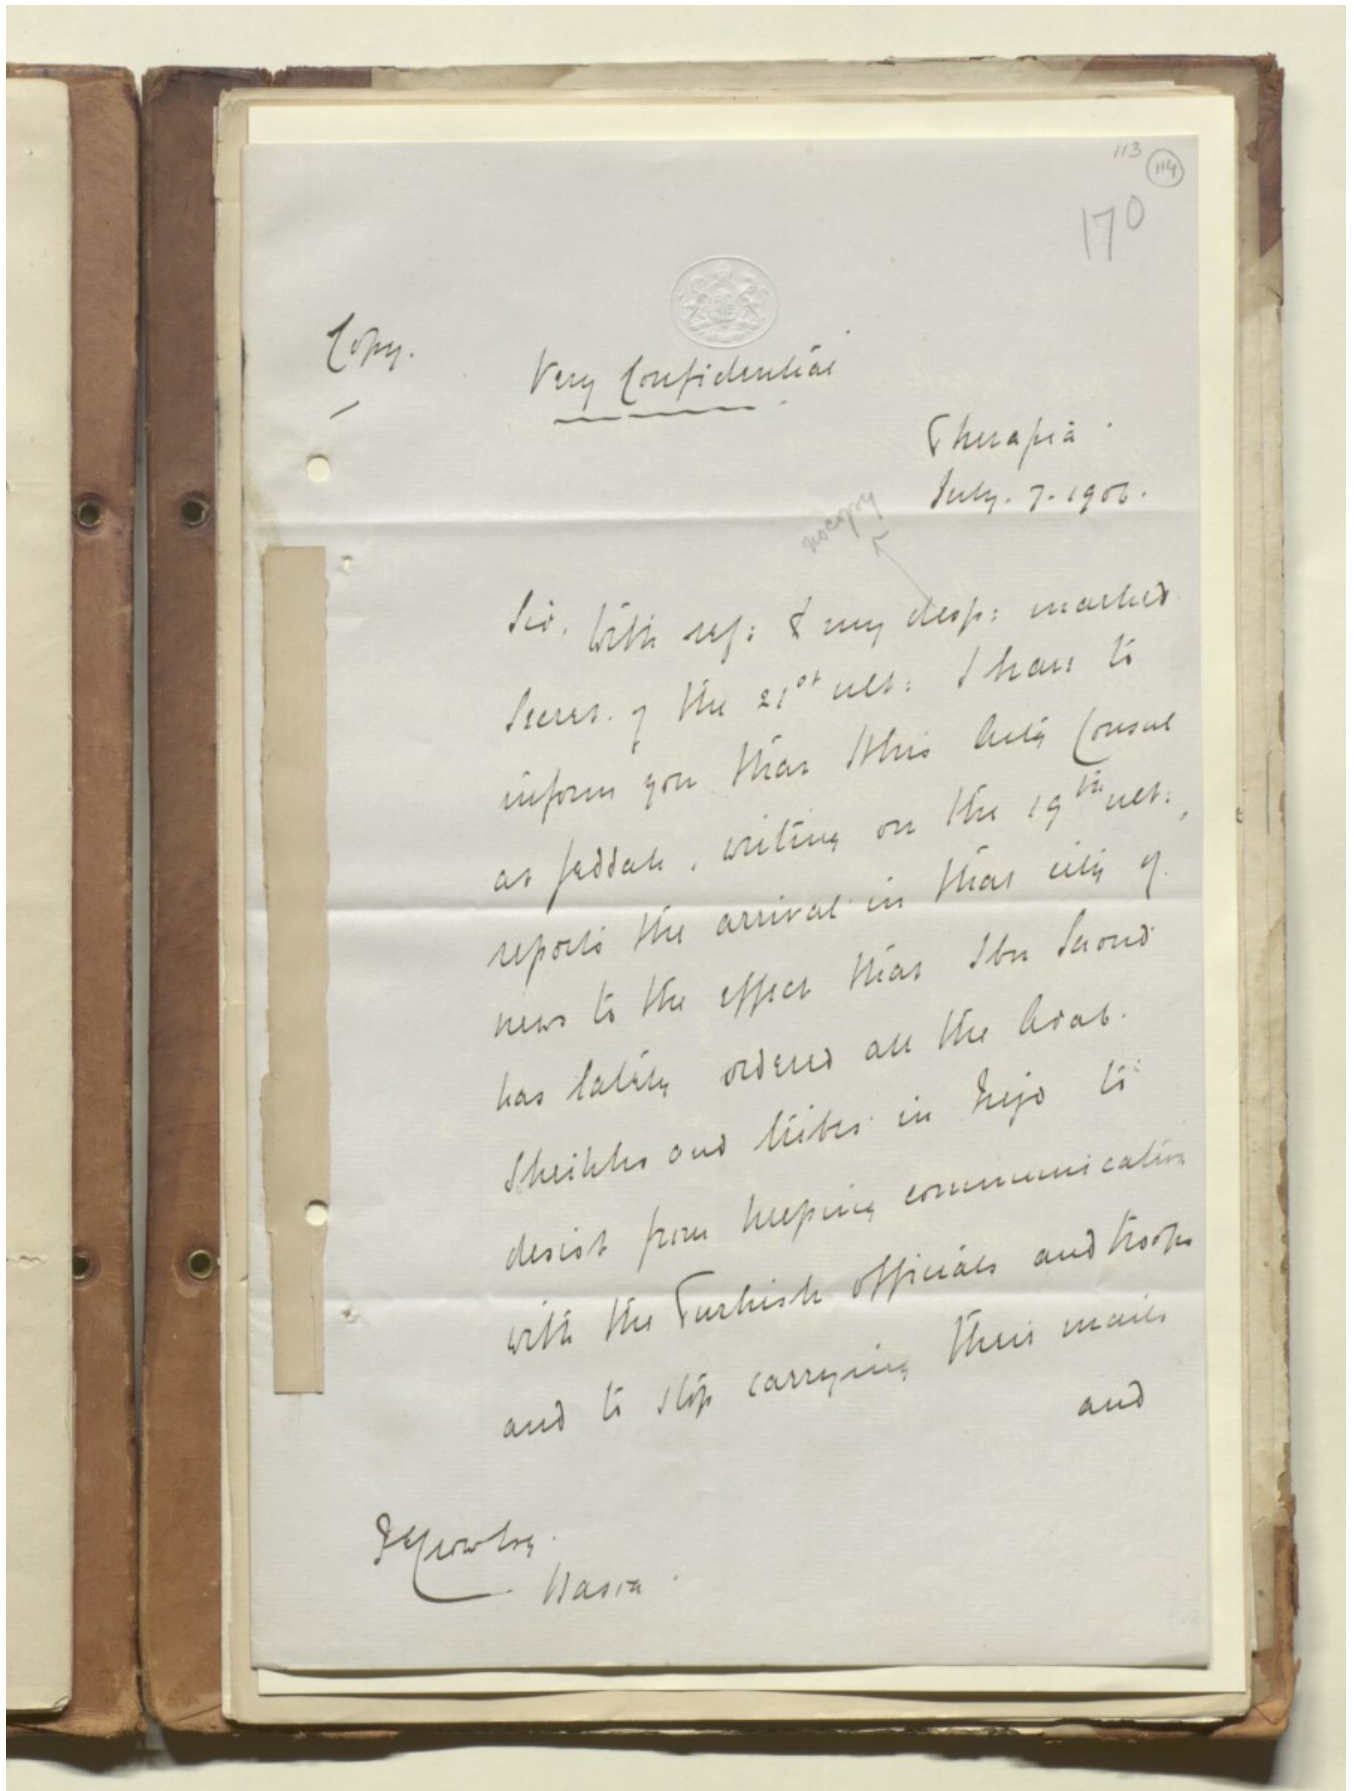 113
114
170
Copy.
Very Confidential
Therapia.
July. 7. 1906.
no copy
Sir, With ref: to my desp: marked
Secret. of the 21st ult: I have to
inform you that HM's Actg Consul
at Jeddah, writing on the 19th ult:,
reports the arrival in that city of
news to the effect that Ibn Saoud
has lately ordered all the Arab.
Sheikhs and tribes in Nejd to
desist from keeping communication
with the Turkish officials and troops
and to stop carrying their mails
and
Crowley.
Basra.